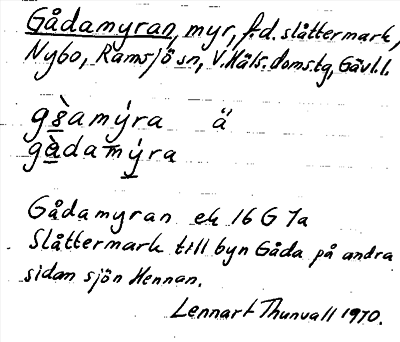 Gådamyran, myr, f.d. slåttermark,
Nybo, Ramsjö sn, V. Häls. doms.tg, Gävl.l.
ä
Gådamyran ek 16 G 7a
Slåttermark till byn Gåda på andra
sidan sjön Hennan.
Lennart Thunvall 1970.